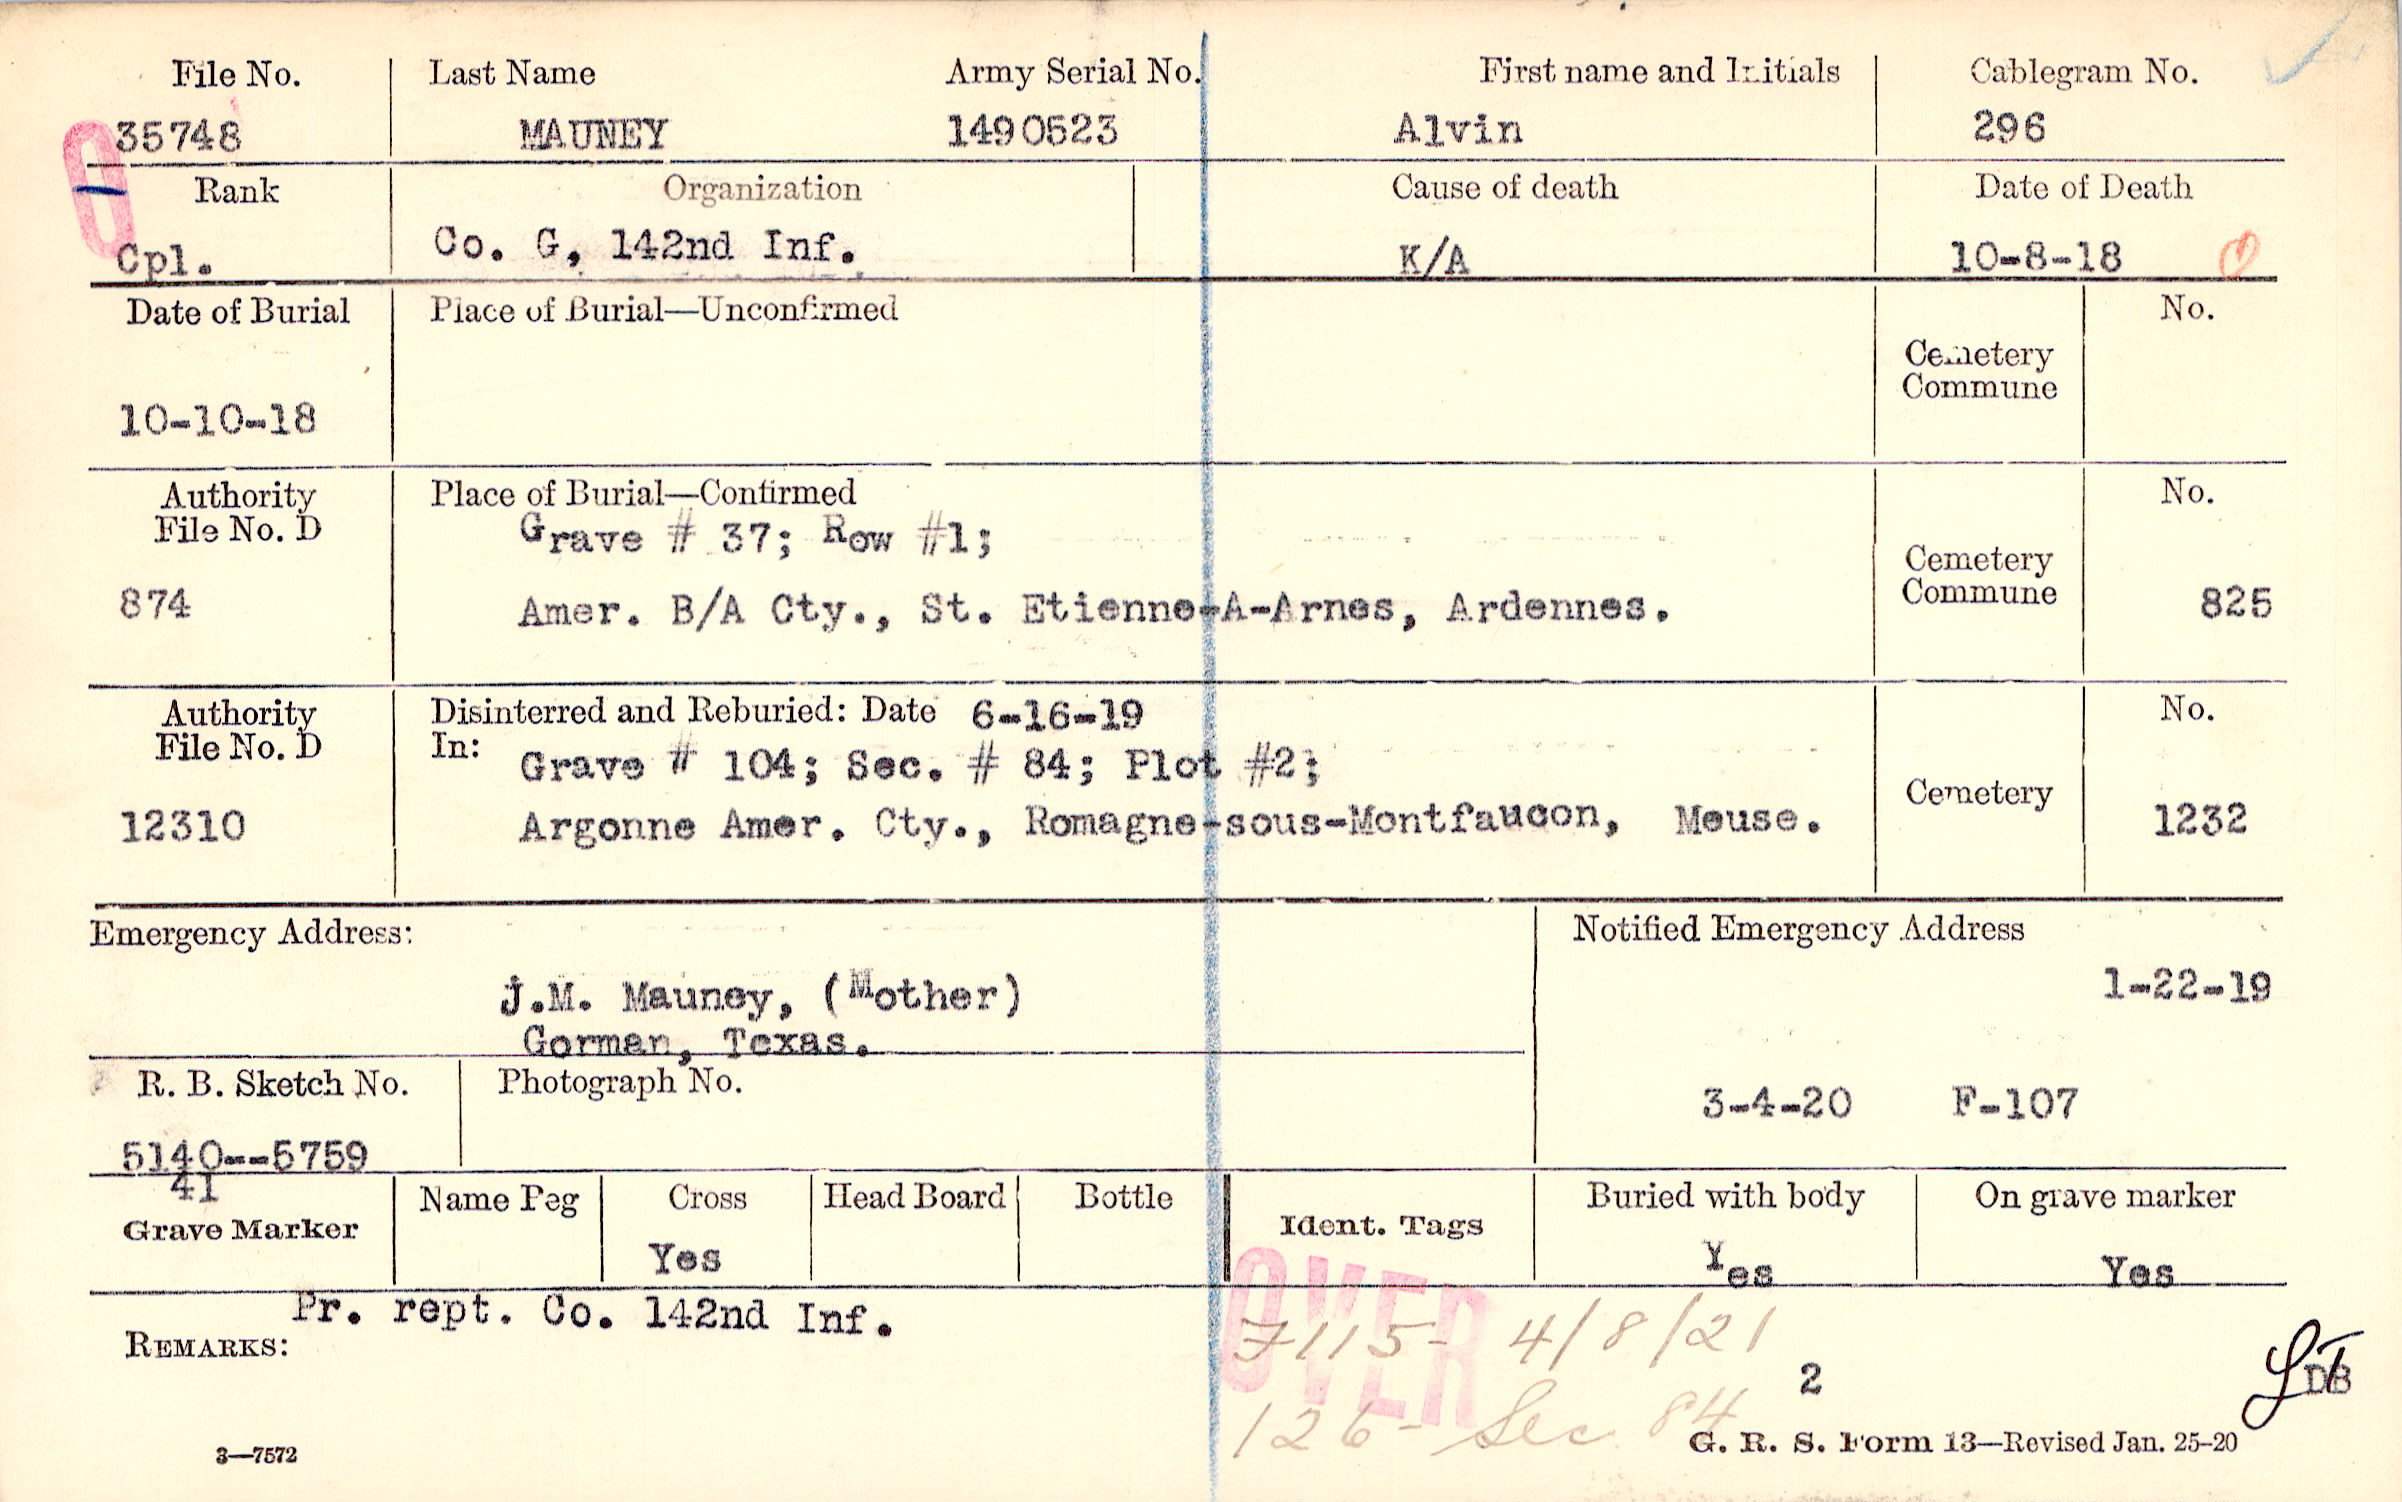 File No. Last Name Army Serial No. First name and Initials Cablegram No.
35748 MAUNEY 1490523 Alvin 296
Rank Organization Cause of death Date of Death
Cpl. Co. G, 142nd Inf. K/A 10-8-18
Date of Burial Place of Burial—Unconfirmed No.
Cemetery
Commune
10-10-18
Authority Place of Burial—Confirmed No.
File No. D Grave # 37; Row #1;
Cemetery
Commune
874 Amer. B/A Cty., St. Etienne-A-Arnes, Ardennes. 825
Authority Disinterred and Reburied: Date 6-16-19 No.
File No. D In: Grave # 104; Sec. # 84; Plot #2;
Cemetery
12310 Argonne Amer. Cty., Romagne-sous-Montfaucon, Meuse. 1232
Emergency Address: Notified Emergency Address
J.M. Mauney, (Mother) 1-22-19
Gorman, Texas.
R. B. Sketch No. Photograph No.
3-4-20 F-107
5140--5759
41
Grave Marker Name Peg Cross Head Board Bottle Ident. Tags Buried with body On grave marker
Yes Yes Yes
Pr. rept. Co. 142nd Inf.
REMARKS:
OVER
7115- 4/8/21
2
DB
126- Sec 84
3—7572 G. R. S. Form 13—Revised Jan. 25-20